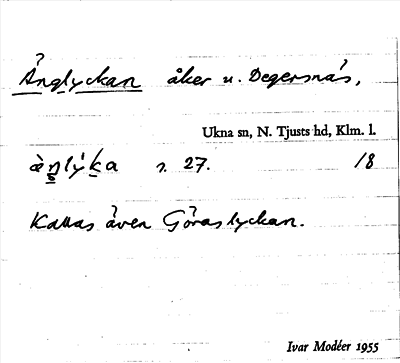 Ånglyckan åker u. Degersnäs,
Ukna sn, N. Tjusts hd, Klm. l.
s. 27. 18
Kallas även Göraslyckan.
Ivar Modéer 1955